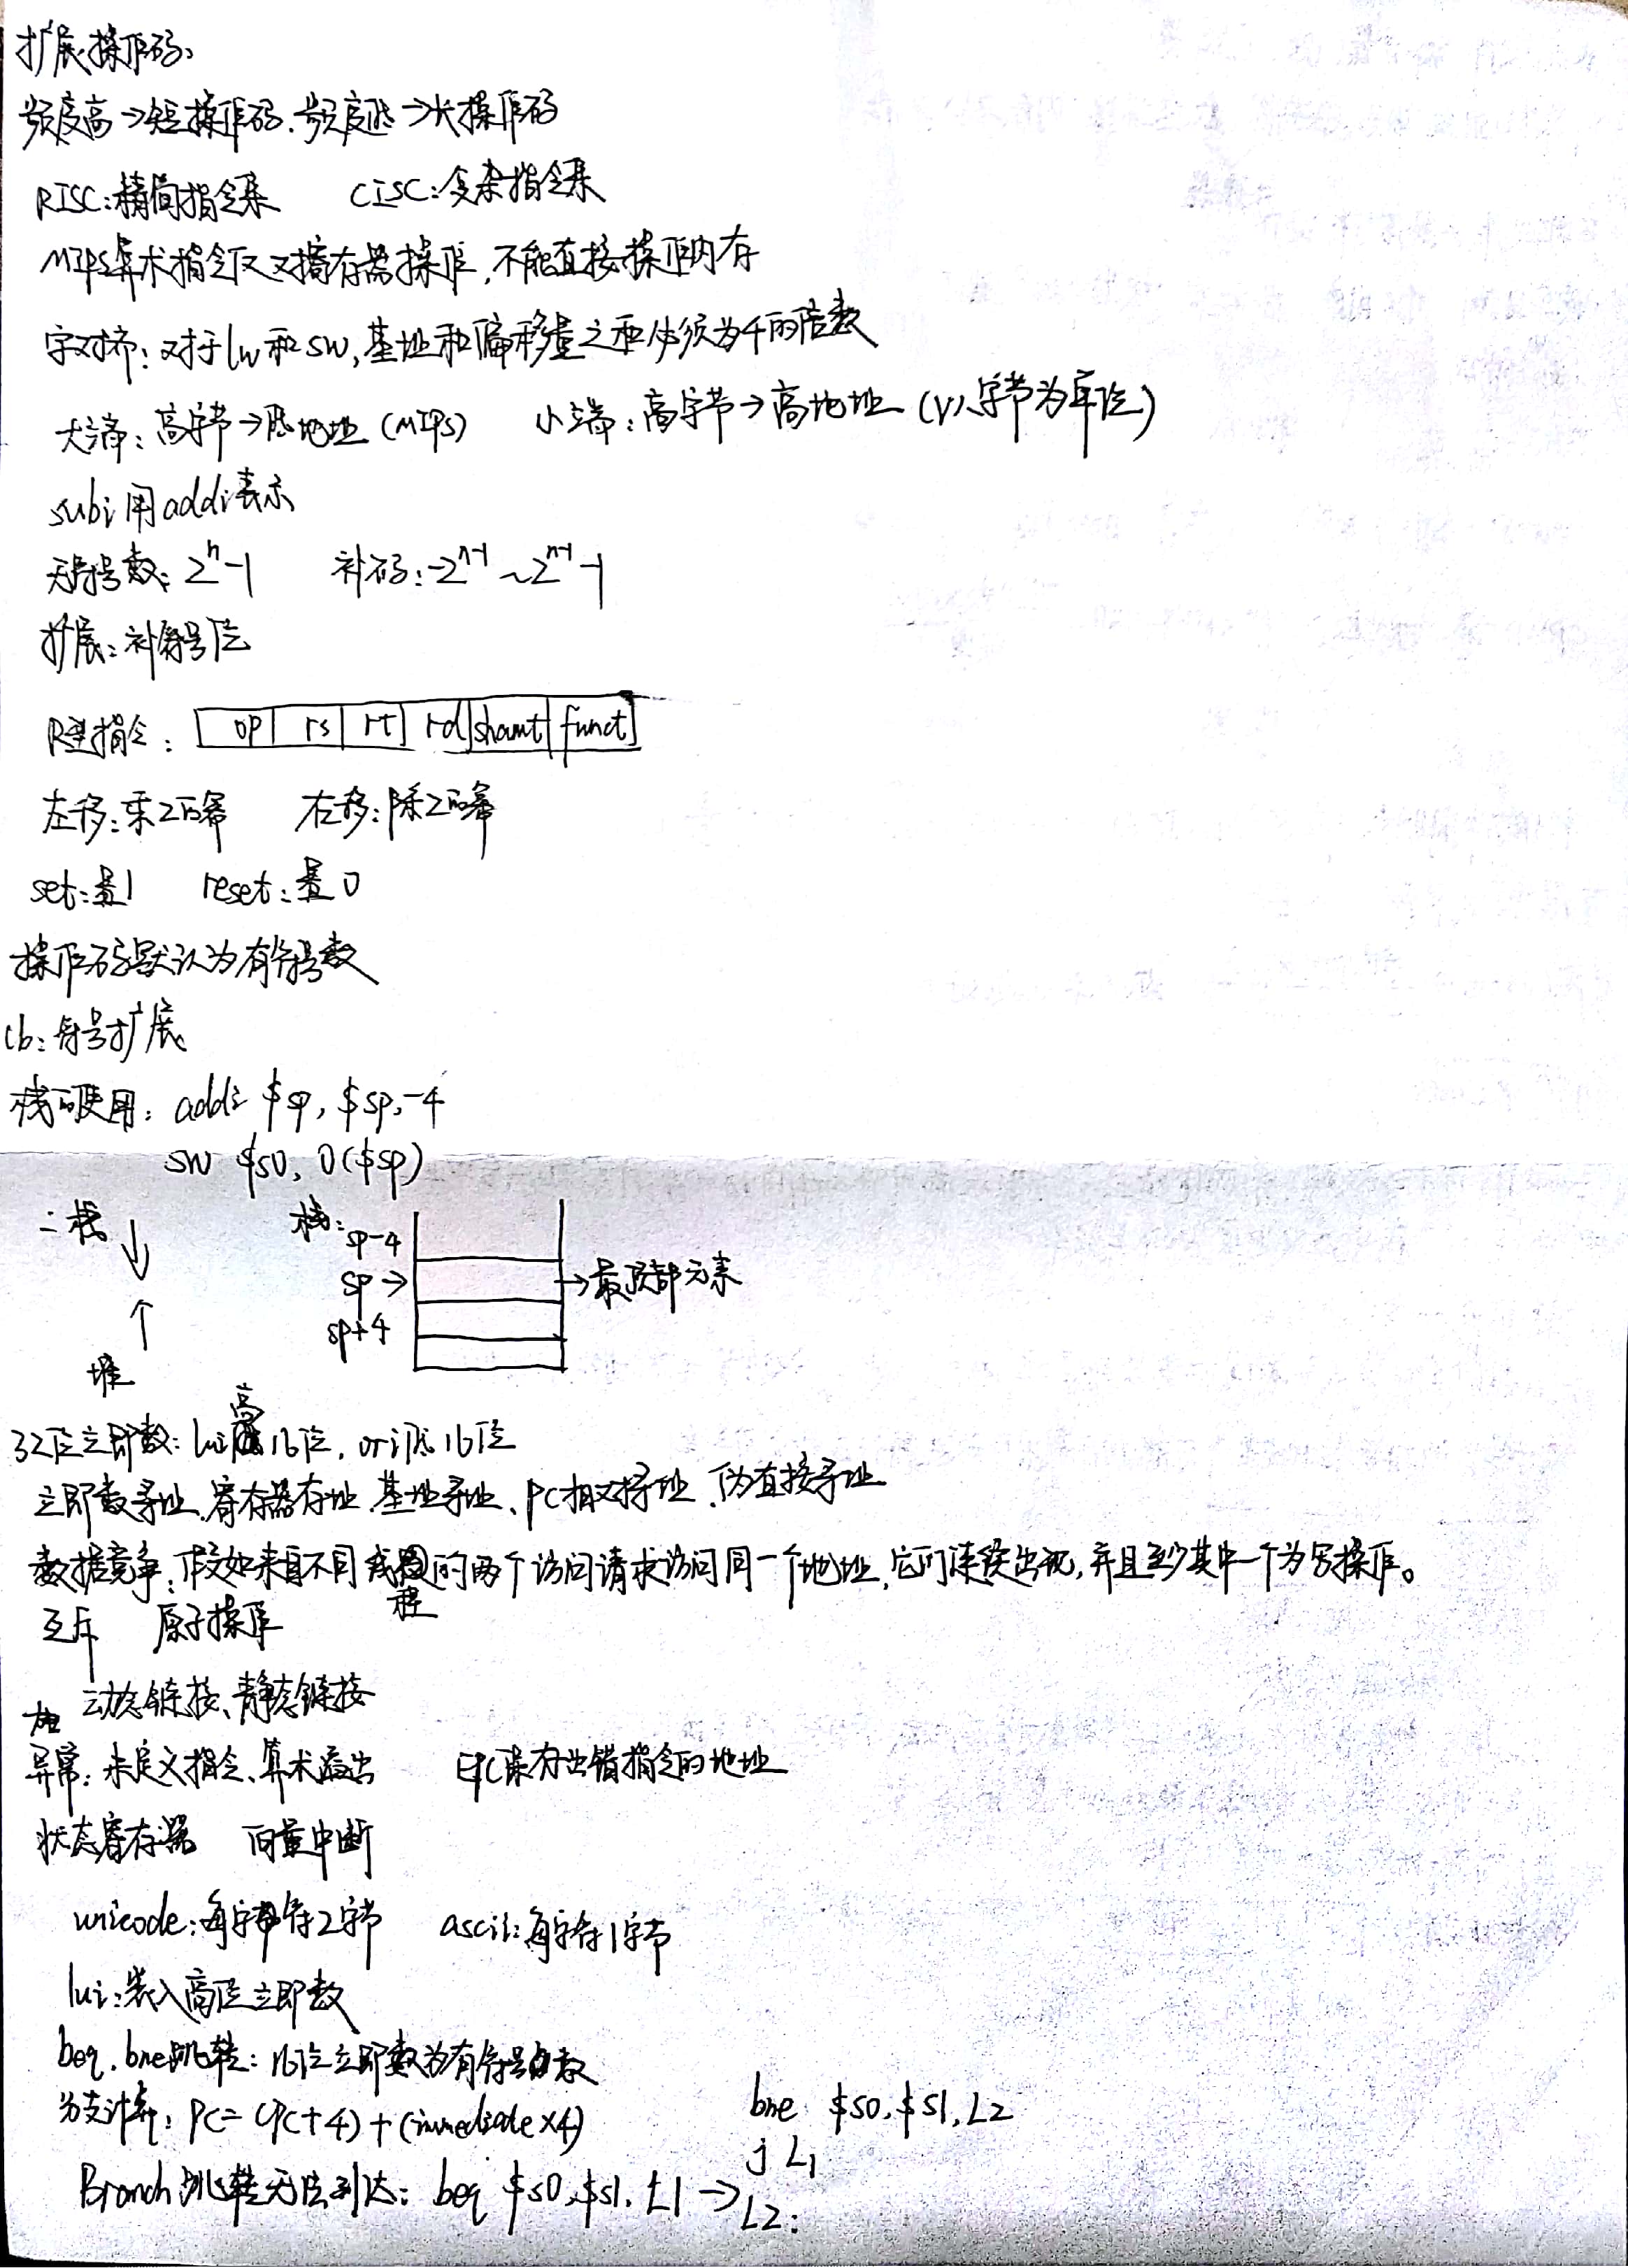 扩展操作码:
频度高→短操作码.频度低→长操作码
RISC:精简指令集 CISC:复杂指令集
MIPS算术指令仅对寄存器操作,不能直接操作内存
字对齐:对于lw和sw,基址和偏移量之和必须为4的倍数
大端:高字节→低地址(MIPS) 小端:高字节→高地址(以字节为单位)
subi用addi表示
无符号数:2^n-1 补码:-2^n-1~2^n-1-1
扩展:补符号位
R型指令: op rs rt rd shamt funct
左移:乘2的幂 右移:除2的幂
set:置1 reset:置0
操作码默认为有符号数
lb:符号扩展
栈的使用: addi $sp,$sp,-4
sw $s0, 0($sp)
栈↓ 栈: sp-4
sp→ →最顶部元素
↑ sp+4
堆
32位立即数:lui高16位,ori低16位
立即数寻址.寄存器存址.基址寻址、PC相对寻址.伪直接寻址
数据竞争:假如来自不同线程的两个访问请求访问同一个地址,它们连续出现,并且至少其中一个为写操作。
互斥 原子操作
动态链接、静态链接
异常:未定义指令、算术溢出 EPC保存出错指令的地址
状态寄存器 向量中断
unicode:每字符2字节 ascii:每字符1字节
lui:装入高位立即数
beq.bne跳转:16位立即数为有符号数
分支计算:PC=(PC+4)+(immediate×4)
bne $s0,$s1,L2
j L1
Branch跳转无法到达: beq $s0,$s1,L1→ L2: